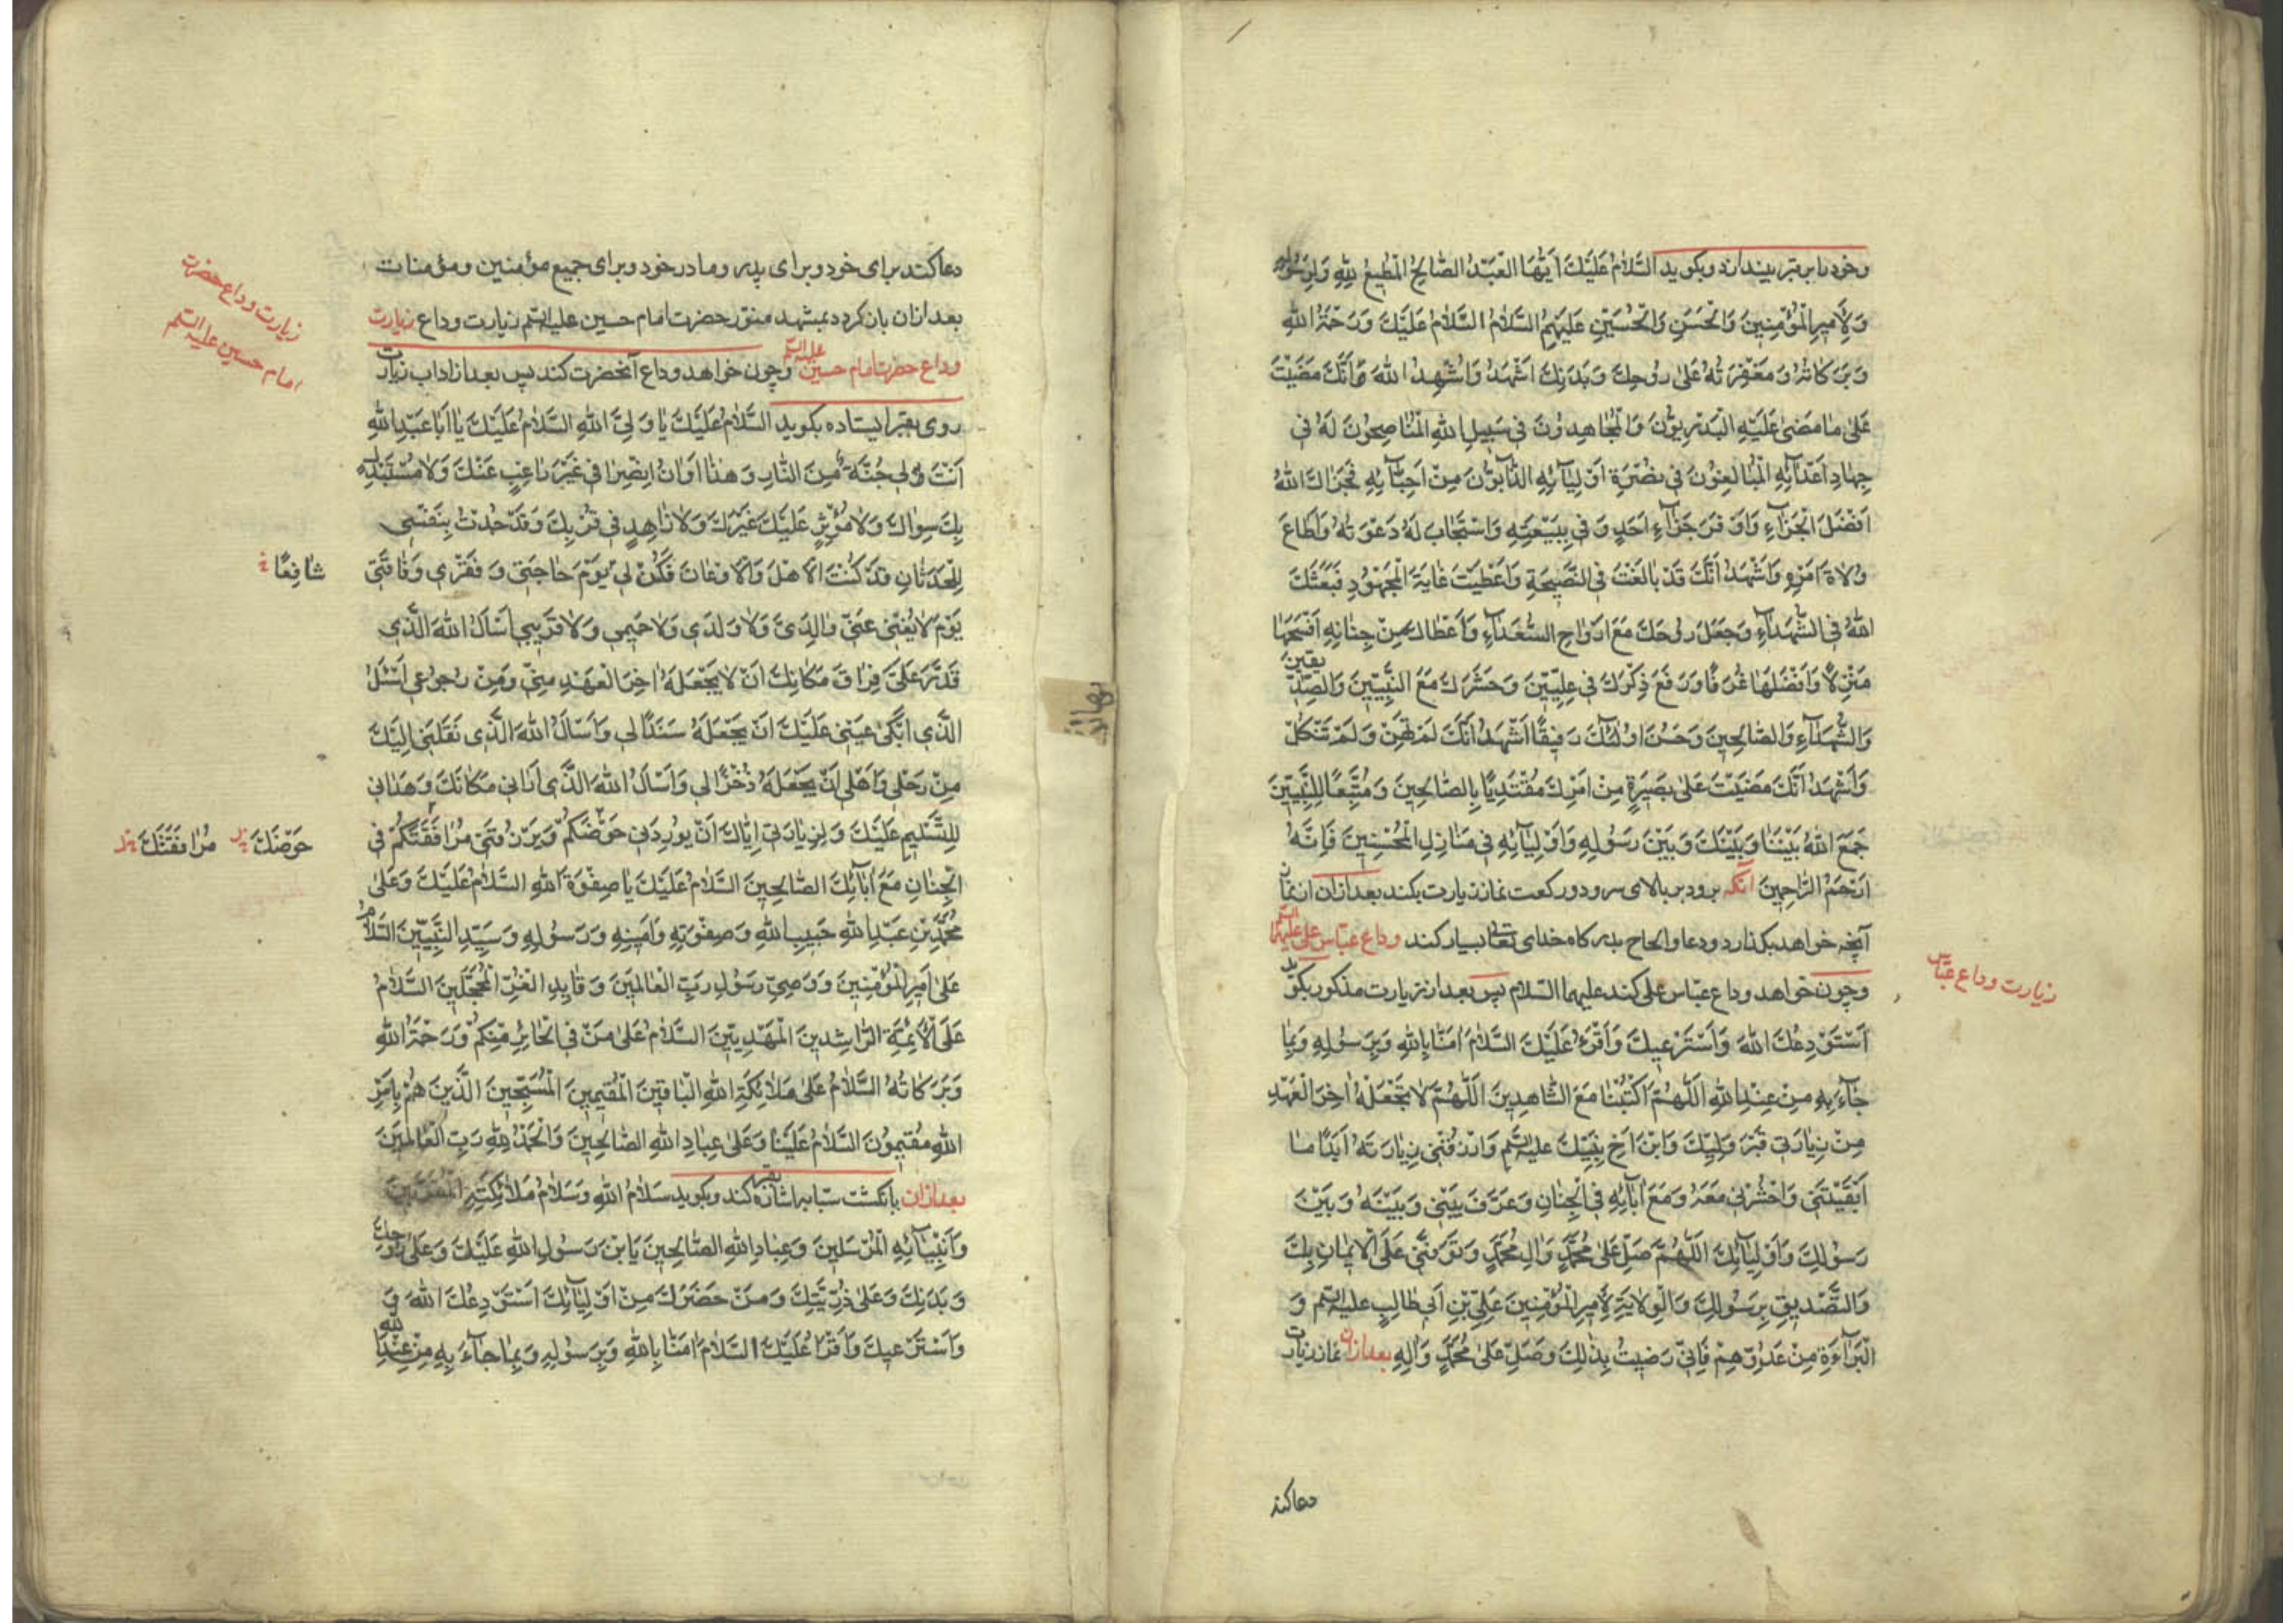 وخود را بر قبر بیندازد و بکوید السَّلامُ عَلَیْكَ اَیُّهَا الْعَبْدُ الصَّالِحُ الْمُطِیعُ لِلّٰهِ وَلِرَسُولِهِ
وَلِأَمِیرِ الْمُؤْمِنِینَ وَالْحَسَنِ وَالْحُسَیْنِ عَلَیْهِمُ السَّلامُ السَّلامُ عَلَیْكَ وَرَحْمَةُ اللهِ
وَبَرَکَاتُهُ وَمَغْفِرَتُهُ عَلٰی رُوحِكَ وَبَدَنِكَ اَشْهَدُ وَاُشْهِدُ اللهَ اَنَّكَ مَضَیْتَ
عَلٰی مَا مَضٰی عَلَیْهِ الْبَدْرِیُّونَ وَالْمُجَاهِدُونَ فِی سَبِیلِ اللهِ الْمُنَاصِحُونَ لَهُ فِی
جِهَادِ اَعْدَآئِهِ الْمُبَالِغُونَ فِی نُصْرَةِ اَوْلِیَآئِهِ الذَّآبُّونَ مِنْ اَحِبَّآئِهِ فَجَزَاكَ اللهُ
اَفْضَلَ الْجَزَآءِ وَاَوْفَرَ جَزَآءِ اَحَدٍ وَفٰی بِبَیْعَتِهِ وَاسْتَجَابَ لَهُ دَعْوَتَهُ وَاَطَاعَ
وُلَاةَ اَمْرِهِ وَاَشْهَدُ اَنَّكَ قَدْ بَالَغْتَ فِی النَّصِیحَةِ وَاَعْطَیْتَ غَایَةَ الْمَجْهُودِ فَبَعَثَكَ
اللهُ فِی الشُّهَدَآءِ وَجَعَلَ رُوحَكَ مَعَ اَرْوَاحِ السُّعَدَآءِ وَاَعْطَاكَ مِنْ جِنَانِهِ اَفْسَحَهَا
مَنْزِلًا وَاَفْضَلَهَا غُرَفًا وَرَفَعَ ذِکْرَكَ فِی عِلِّیِّینَ وَحَشَرَكَ مَعَ النَّبِیِّینَ وَالصِّدِّیقِینَ
وَالشُّهَدَآءِ وَالصَّالِحِینَ وَحَسُنَ اُولٰئِكَ رَفِیقًا اَشْهَدُ اَنَّكَ لَمْ تَهِنْ وَلَمْ تَنْکُلْ
وَاَشْهَدُ اَنَّكَ مَضَیْتَ عَلٰی بَصِیرَةٍ مِنْ اَمْرِكَ مُقْتَدِیًا بِالصَّالِحِینَ وَمُتَّبِعًا لِلنَّبِیِّینَ
جَمَعَ اللهُ بَیْنَنَا وَبَیْنَكَ وَبَیْنَ رَسُولِهِ وَاَوْلِیَآئِهِ فِی مَنَازِلِ الْمُحْسِنِینَ فَاِنَّهُ
اَرْحَمُ الرَّاحِمِینَ آنکه برود بر بالای سر و دو رکعت نماز زیارت بکند بعد ازان از نماز
آنچه خواهد بکذارد و دعا و الحاح بدرکاه خدای تعالی بسیار کند وداع عباس علی علیهما السلم
وچون خواهد وداع عباس علی کند علیهما السلام پس بعد از زیارت مذکور بکوید
اَسْتَوْدِعُكَ اللهَ وَاَسْتَرْعِیكَ وَاَقْرَءُ عَلَیْكَ السَّلامَ اٰمَنَّا بِاللهِ وَبِرَسُولِهِ وَبِمَا
جَآءَ بِهِ مِنْ عِنْدِ اللهِ اَللّٰهُمَّ اکْتُبْنَا مَعَ الشَّاهِدِینَ اَللّٰهُمَّ لَا تَجْعَلْهُ اٰخِرَ الْعَهْدِ
مِنْ زِیَارَتِی قَبْرَ وَلِیِّكَ وَابْنِ اَخِ نَبِیِّكَ علیه السلم وَارْزُقْنِی زِیَارَتَهُ اَبَدًا مَا
اَبْقَیْتَنِی وَاحْشُرْنِی مَعَهُ وَمَعَ اٰبَآئِهِ فِی الْجِنَانِ وَعَرِّفْ بَیْنِی وَبَیْنَهُ وَبَیْنَ
رَسُولِكَ وَاَوْلِیَآئِكَ اَللّٰهُمَّ صَلِّ عَلٰی مُحَمَّدٍ وَاٰلِ مُحَمَّدٍ وَتَوَفَّنِی عَلَی الْاِیمَانِ بِكَ
وَالتَّصْدِیقِ بِرَسُولِكَ وَالْوِلَایَةِ لِأَمِیرِ الْمُؤْمِنِینَ عَلِیِّ بْنِ اَبِی طَالِبٍ علیه السلم وَ
الْبَرَآءَةِ مِنْ عَدُوِّهِمْ فَاِنِّی رَضِیتُ بِذٰلِكَ وَصَلِّ عَلٰی مُحَمَّدٍ وَاٰلِهِ بعد ازان نماز زیارت
زیارت وداع عباس
دعا کند
دعا کند برای خود و برای پدر و مادر خود و برای جمیع مؤمنین و مؤمنات
بعد ازان باز کردد بمشهد منور حضرت امام حسین علیه السلم زیارت وداع زیارت
وداع حضرت امام حسین علیه السلم وچون خواهد وداع آنحضرت کند پس بعد از اداب زیارت
روی بقبر ایستاده بکوید السَّلامُ عَلَیْكَ یَا وَلِیَّ اللهِ السَّلامُ عَلَیْكَ یَا اَبَا عَبْدِ اللهِ
اَنْتَ لِی جُنَّةٌ مِنَ النَّارِ وَهٰذَا اَوَانُ انْصِرَافِی غَیْرَ رَاغِبٍ عَنْكَ وَلَا مُسْتَبْدِلٍ
بِكَ سِوَاكَ وَلَا مُؤْثِرٍ عَلَیْكَ غَیْرَكَ وَلَا زَاهِدٍ فِی قُرْبِكَ وَقَدْ جُدْتُ بِنَفْسِی
لِلْحَدَثَانِ وَتَرَکْتُ الْاَهْلَ وَالْاَوْطَانَ فَکُنْ لِی یَوْمَ حَاجَتِی وَفَقْرِی وَفَاقَتِی
یَوْمَ لَا یُغْنِی عَنِّی وَالِدَیَّ وَلَا وَلَدِی وَلَا حَمِیمِی وَلَا قَرِیبِی اَسْاَلُ اللهَ الَّذِی
قَدَّرَ عَلَیَّ فِرَاقَ مَکَانِكَ اَنْ لَا یَجْعَلَهُ اٰخِرَ الْعَهْدِ مِنِّی وَمِنْ رُجُوعِی اَسْئَلُ
الَّذِی اَبْکٰی عَیْنِی عَلَیْكَ اَنْ یَجْعَلَهُ سَنَدًا لِی وَاَسْاَلُ اللهَ الَّذِی نَقَلَنِی اِلَیْكَ
مِنْ رَحْلِی وَاَهْلِی اَنْ یَجْعَلَهُ ذُخْرًا لِی وَاَسْاَلُ اللهَ الَّذِی اَرَانِی مَکَانَكَ وَهَدَانِی
لِلتَّسْلِیمِ عَلَیْكَ وَلِزِیَارَتِی اِیَّاكَ اَنْ یُورِدَنِی حَوْضَکُمْ وَیَرْزُقَنِی مُرَافَقَتَکُمْ فِی
الْجِنَانِ مَعَ اٰبَآئِكَ الصَّالِحِینَ السَّلامُ عَلَیْكَ یَا صِفْوَةَ اللهِ السَّلامُ عَلَیْكَ وَعَلٰی
مُحَمَّدِ بْنِ عَبْدِ اللهِ حَبِیبِ اللهِ وَصِفْوَتِهِ وَاَمِینِهِ وَرَسُولِهِ وَسَیِّدِ النَّبِیِّینَ السَّلامُ
عَلٰی اَمِیرِ الْمُؤْمِنِینَ وَوَصِیِّ رَسُولِ رَبِّ الْعَالَمِینَ وَقَایِدِ الْغُرِّ الْمُحَجَّلِینَ السَّلامُ
عَلَی الْاَئِمَّةِ الرَّاشِدِینَ الْمَهْدِیِّینَ السَّلامُ عَلٰی مَنْ فِی الْحَایِرِ مِنْکُمْ وَرَحْمَةُ اللهِ
وَبَرَکَاتُهُ السَّلامُ عَلٰی مَلَائِکَةِ اللهِ الْبَاقِینَ الْمُقِیمِینَ الْمُسَبِّحِینَ الَّذِینَ هُمْ بِاَمْرِ
اللهِ مُقِیمُونَ السَّلامُ عَلَیْنَا وَعَلٰی عِبَادِ اللهِ الصَّالِحِینَ وَالْحَمْدُ لِلّٰهِ رَبِّ الْعَالَمِینَ
بعد ازان بانکشت سبابه بقبر اشاره کند و بکوید سَلَامُ اللهِ وَسَلَامُ مَلَائِکَتِهِ الْمُقَرَّبِینَ
وَاَنْبِیَآئِهِ الْمُرْسَلِینَ وَعِبَادِ اللهِ الصَّالِحِینَ یَا ابْنَ رَسُولِ اللهِ عَلَیْكَ وَعَلٰی رُوحِكَ
وَبَدَنِكَ وَعَلٰی ذُرِّیَّتِكَ وَمَنْ حَضَرَكَ مِنْ اَوْلِیَآئِكَ اَسْتَوْدِعُكَ اللهَ وَ
وَاَسْتَرْعِیكَ وَاَقْرَأُ عَلَیْكَ السَّلامَ اٰمَنَّا بِاللهِ وَبِرَسُولِهِ وَبِمَا جَآءَ بِهِ مِنْ عِنْدِ اللهِ
زیارت وداع حضرت
امام حسین علیه السلم
شَافِعًا
حَوْضَكَ مُرَافَقَتَكَ